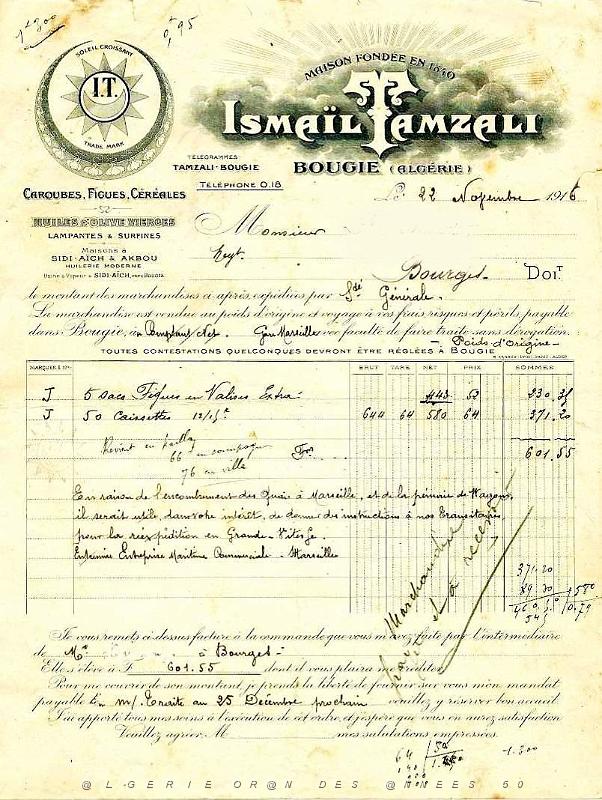 1200
0,95
SOLEIL CROISSANT
I.T.
TRADE MARK
MAISON FONDÉE EN 1840
ISMAÏL TAMZALI
TÉLÉGRAMMES
TAMZALI-BOUGIE
TÉLÉPHONE 0.18
BOUGIE (ALGÉRIE)
CAROUBES, FIGUES, CÉRÉALES
HUILES D'OLIVE VIERGES
LAMPANTES & SURFINES
Maisons à
SIDI-AÏCH & AKBOU
HUILERIE MODERNE
Usine à Vapeur à SIDI-AÏCH, près BOUGIE
Le 22 Novembre 1916
Monsieur
Bourges Doit
le montant des marchandises ci-après expédiées par Sté Générale.
La marchandise est vendue au poids d'origine et voyage à vos frais risques et périls, payable
dans Bougie, à Comptant Net. Gare Marseille avec faculté de faire traite sans dérogation.
- Poids d'Origine -
TOUTES CONTESTATIONS QUELCONQUES DEVRONT ÊTRE RÉGLÉES À BOUGIE
MARQUES & Nos BRUT TARE NET PRIX SOMMES
J 5 sacs Figues en Valises Extra 443 52 230.35
J 50 Caissettes 644 64 580 64 371.20
Revient en
66 en campagne
76 en ville
Frs. 601.55
En raison de l'encombrement des Quais à Marseille, et de la pénurie de Wagons,
il serait utile, dans votre intérêt, de donner des instructions à nos Transitaires
pour la réexpédition en Grande-Vitesse.
Entreprise Maritime Commerciale - Marseille
Marchandise
371.20
89.20
1580
0,79
Je vous remets ci-dessus facture à la commande que vous m'avez faite par l'intermédiaire
de Mr à Bourges -
Elle s'élève à F 601.55 dont il vous plaira me créditer.
Pour me couvrir de son montant, je prends la liberté de fournir sur vous mon mandat
payable en m/ Traite au 25 Décembre prochain veuillez y réserver bon accueil.
J'ai apporté tous mes soins à l'exécution de cet ordre, et j'espère que vous en aurez satisfaction
Veuillez agréer M mes salutations empressées.
64 50
1.300
@L-GERIE OR@N DES @NNEES 50